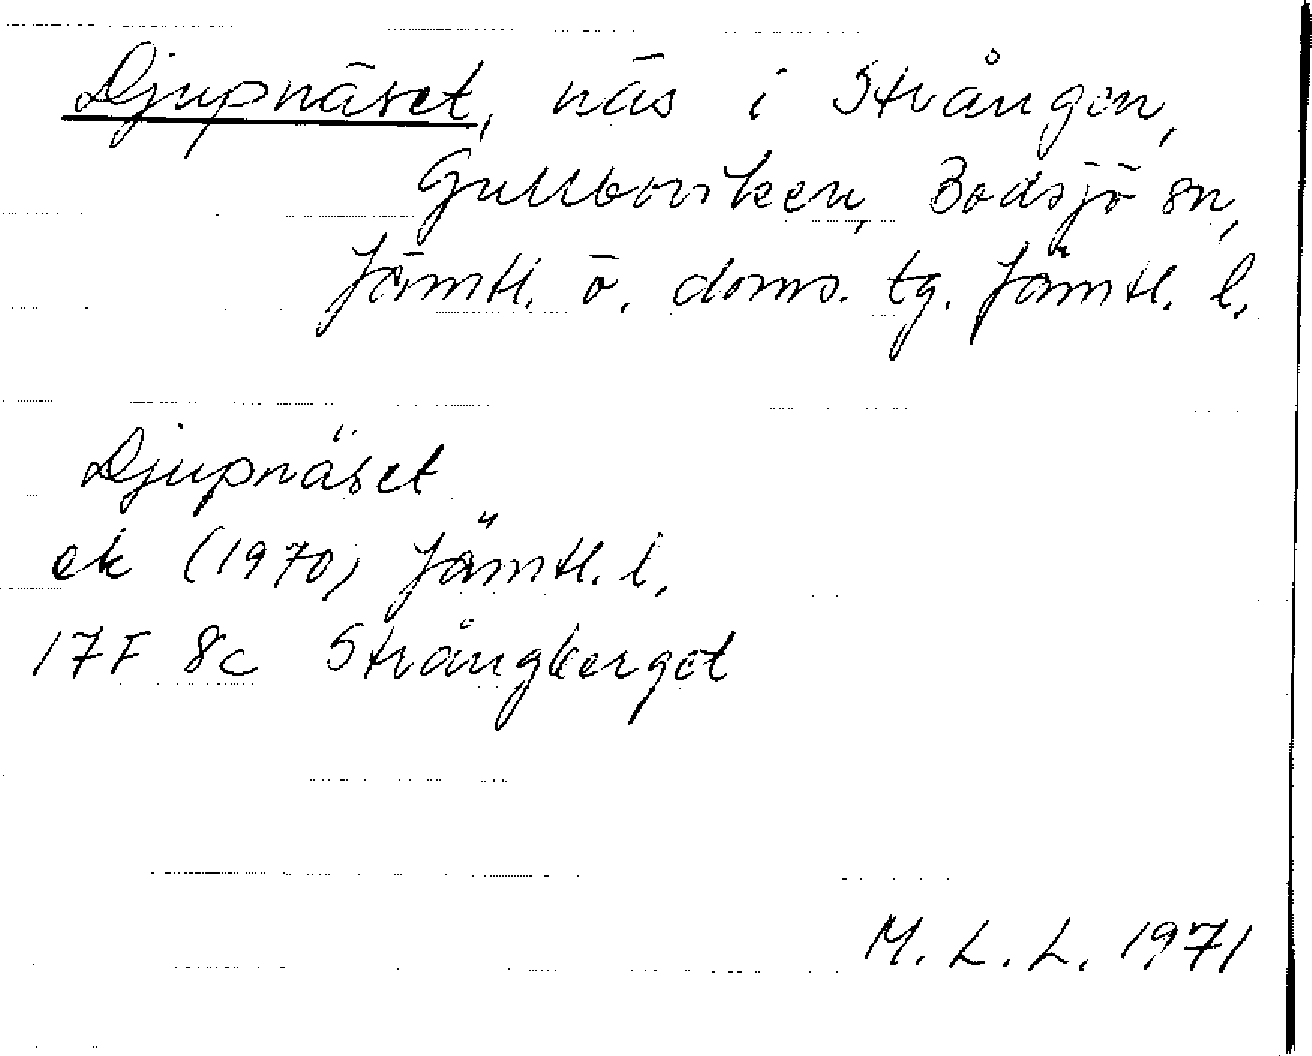 Djupnäset, näs i Strången,
Gullboviken, Bodsjö sn,
Jämtl. ö. doms. tg. Jämtl. l.
Djupnäset
ek (1970) Jämtl. l.
17F 8c Strångberget
M. L. L. 1971